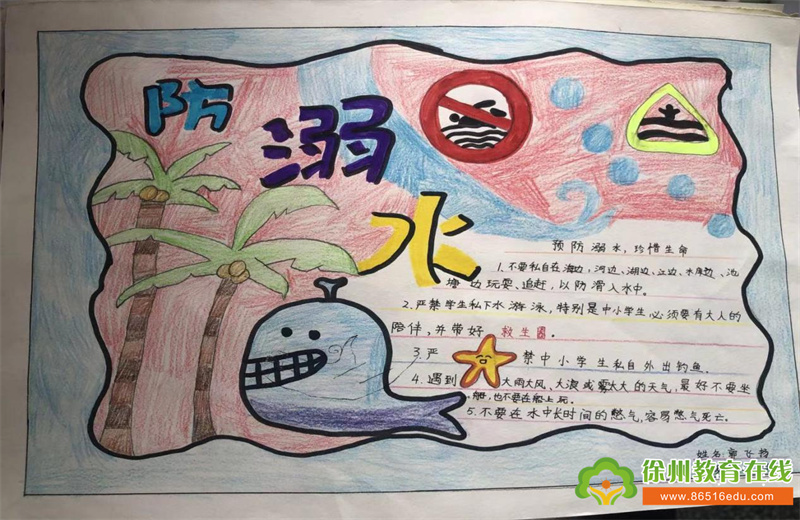 防
溺
水
预防溺水，珍惜生命
1.不要私自在海边，河边，湖边，江边，水库边、池
塘边玩耍、追赶，以防滑入水中。
2.严禁学生私下水游泳，特别是中小学生必须要有大人的
陪伴，并带好救生圈。
3.严禁中小学生私自外出钓鱼。
4.遇到大雨大风、大浪或雾太大的天气，最好不要坐
船，也不要在船上玩。
5.不要在水中长时间的憋气，容易憋气死亡。
姓名
徐州教育在线
www.86516edu.com